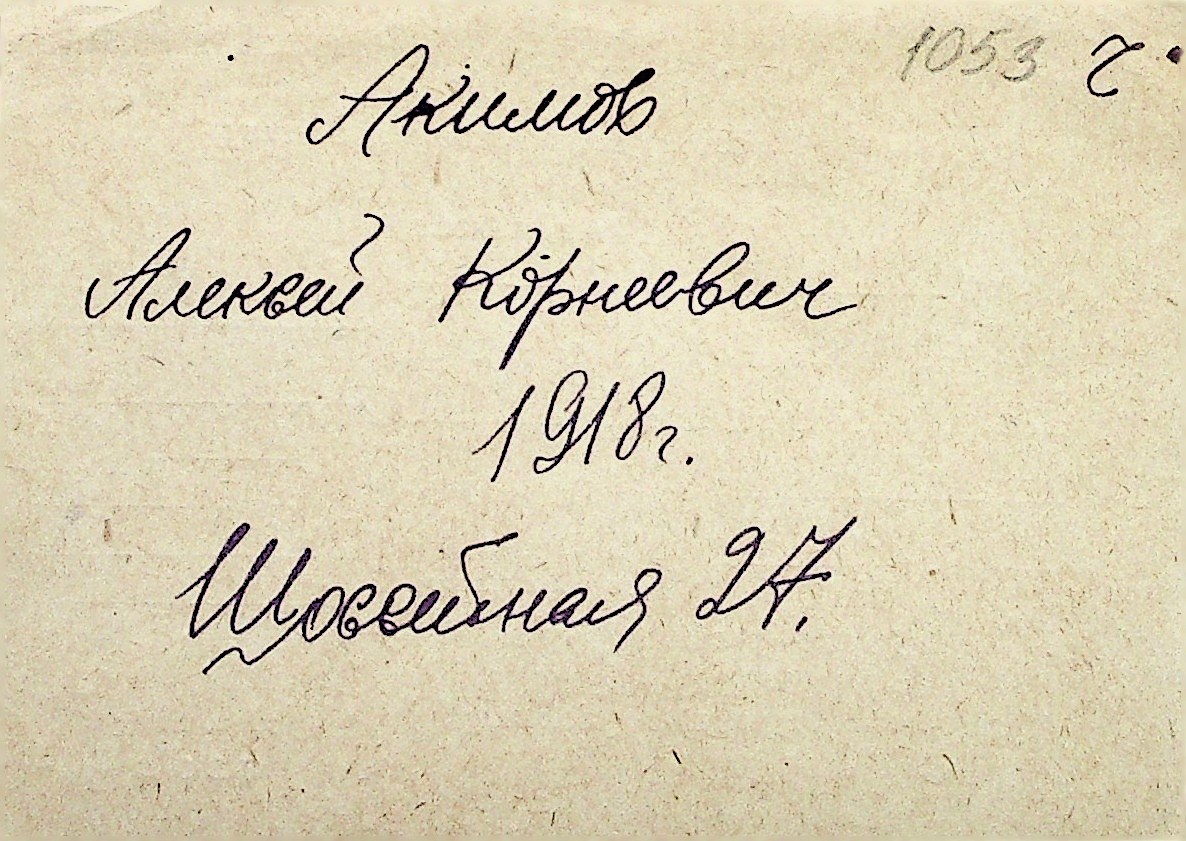 1053 г
Акимов
Алексей Корнеевич
1918г.
Шоссейная 27.